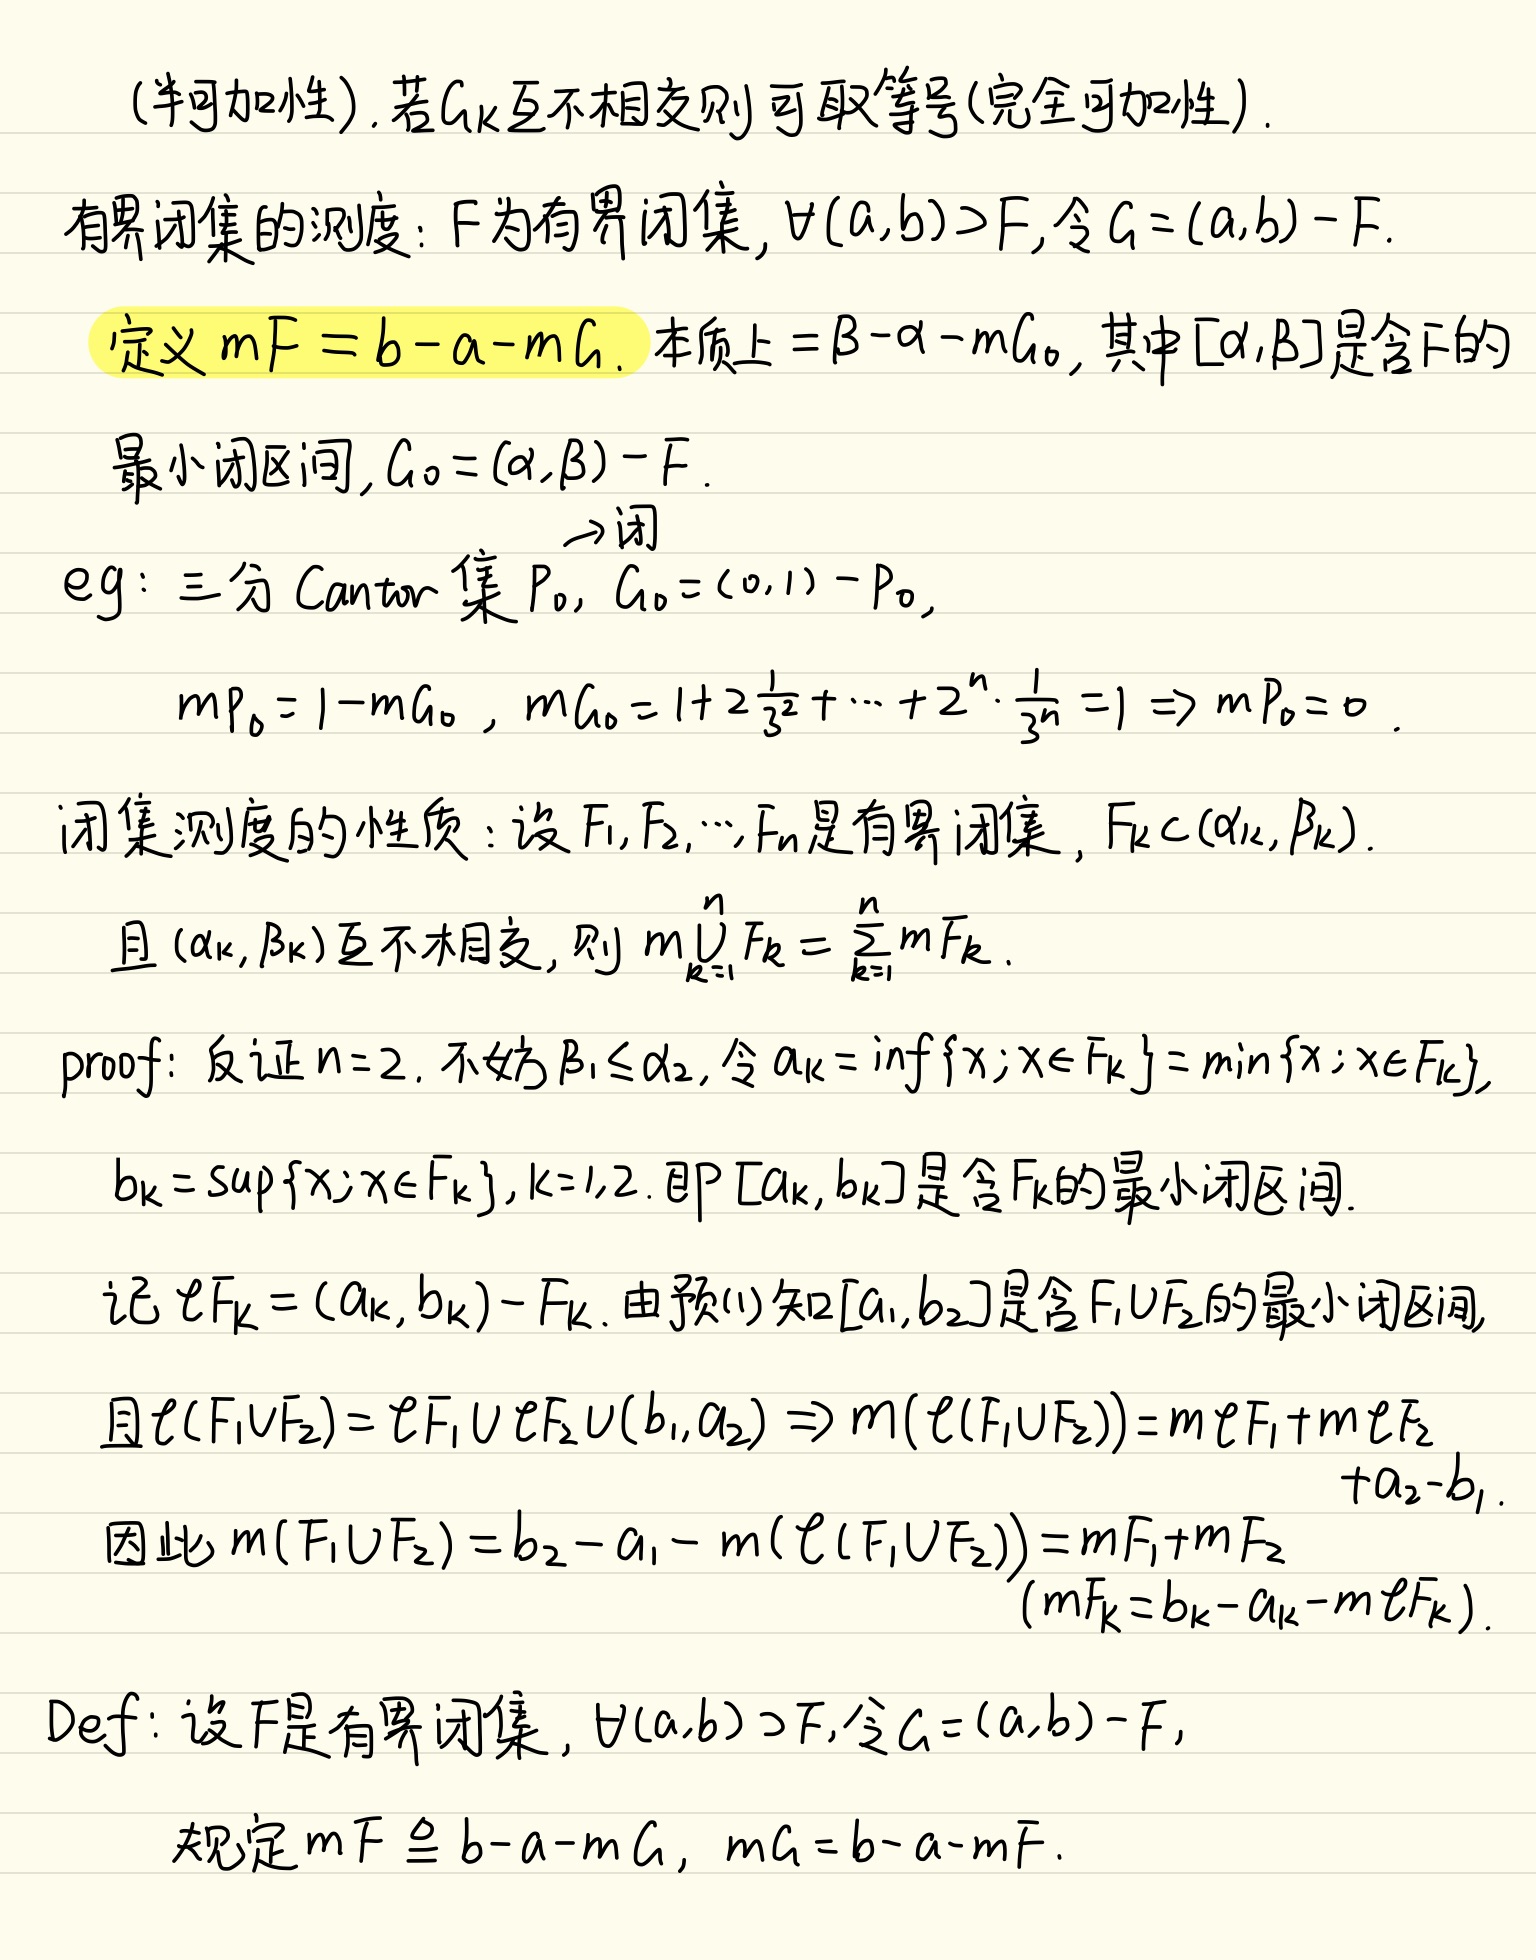 (半可加性). 若G_K互不相交则可取等号(完全可加性).
有界闭集的测度: F为有界闭集, ∀(a,b)⊃F, 令G=(a,b)-F.
定义 mF=b-a-mG. 本质上=β-α-mG₀, 其中[α,β]是含F的
最小闭区间, G₀=(α,β)-F.
→闭
eg: 三分Cantor集P₀, G₀=(0,1)-P₀,
mP₀=1-mG₀, mG₀=1+2\frac{1}{3^2}+⋯+2^n·\frac{1}{3^n}=1 ⇒ mP₀=0.
闭集测度的性质: 设F₁,F₂,⋯,Fₙ是有界闭集, F_K⊂(α_K,β_K).
且(α_K,β_K)互不相交, 则 m\bigcup_{k=1}^{n}F_k=\sum_{k=1}^{n}mF_k.
proof: 反证n=2. 不妨β₁≤α₂, 令a_K=inf{x;x∈F_K}=min{x;x∈F_K},
b_K=sup{x;x∈F_K}, K=1,2. 即[a_K,b_K]是含F_K的最小闭区间.
记 ℓF_K=(a_K,b_K)-F_K. 由预(1)知[a₁,b₂]是含F₁∪F₂的最小闭区间,
且ℓ(F₁∪F₂)=ℓF₁∪ℓF₂∪(b₁,a₂) ⇒ m(ℓ(F₁∪F₂))=mℓF₁+mℓF₂
+a₂-b₁.
因此 m(F₁∪F₂)=b₂-a₁-m(ℓ(F₁∪F₂))=mF₁+mF₂
(mF_K=b_K-a_K-mℓF_K).
Def: 设F是有界闭集, ∀(a,b)⊃F, 令G=(a,b)-F,
规定mF≙b-a-mG, mG=b-a-mF.